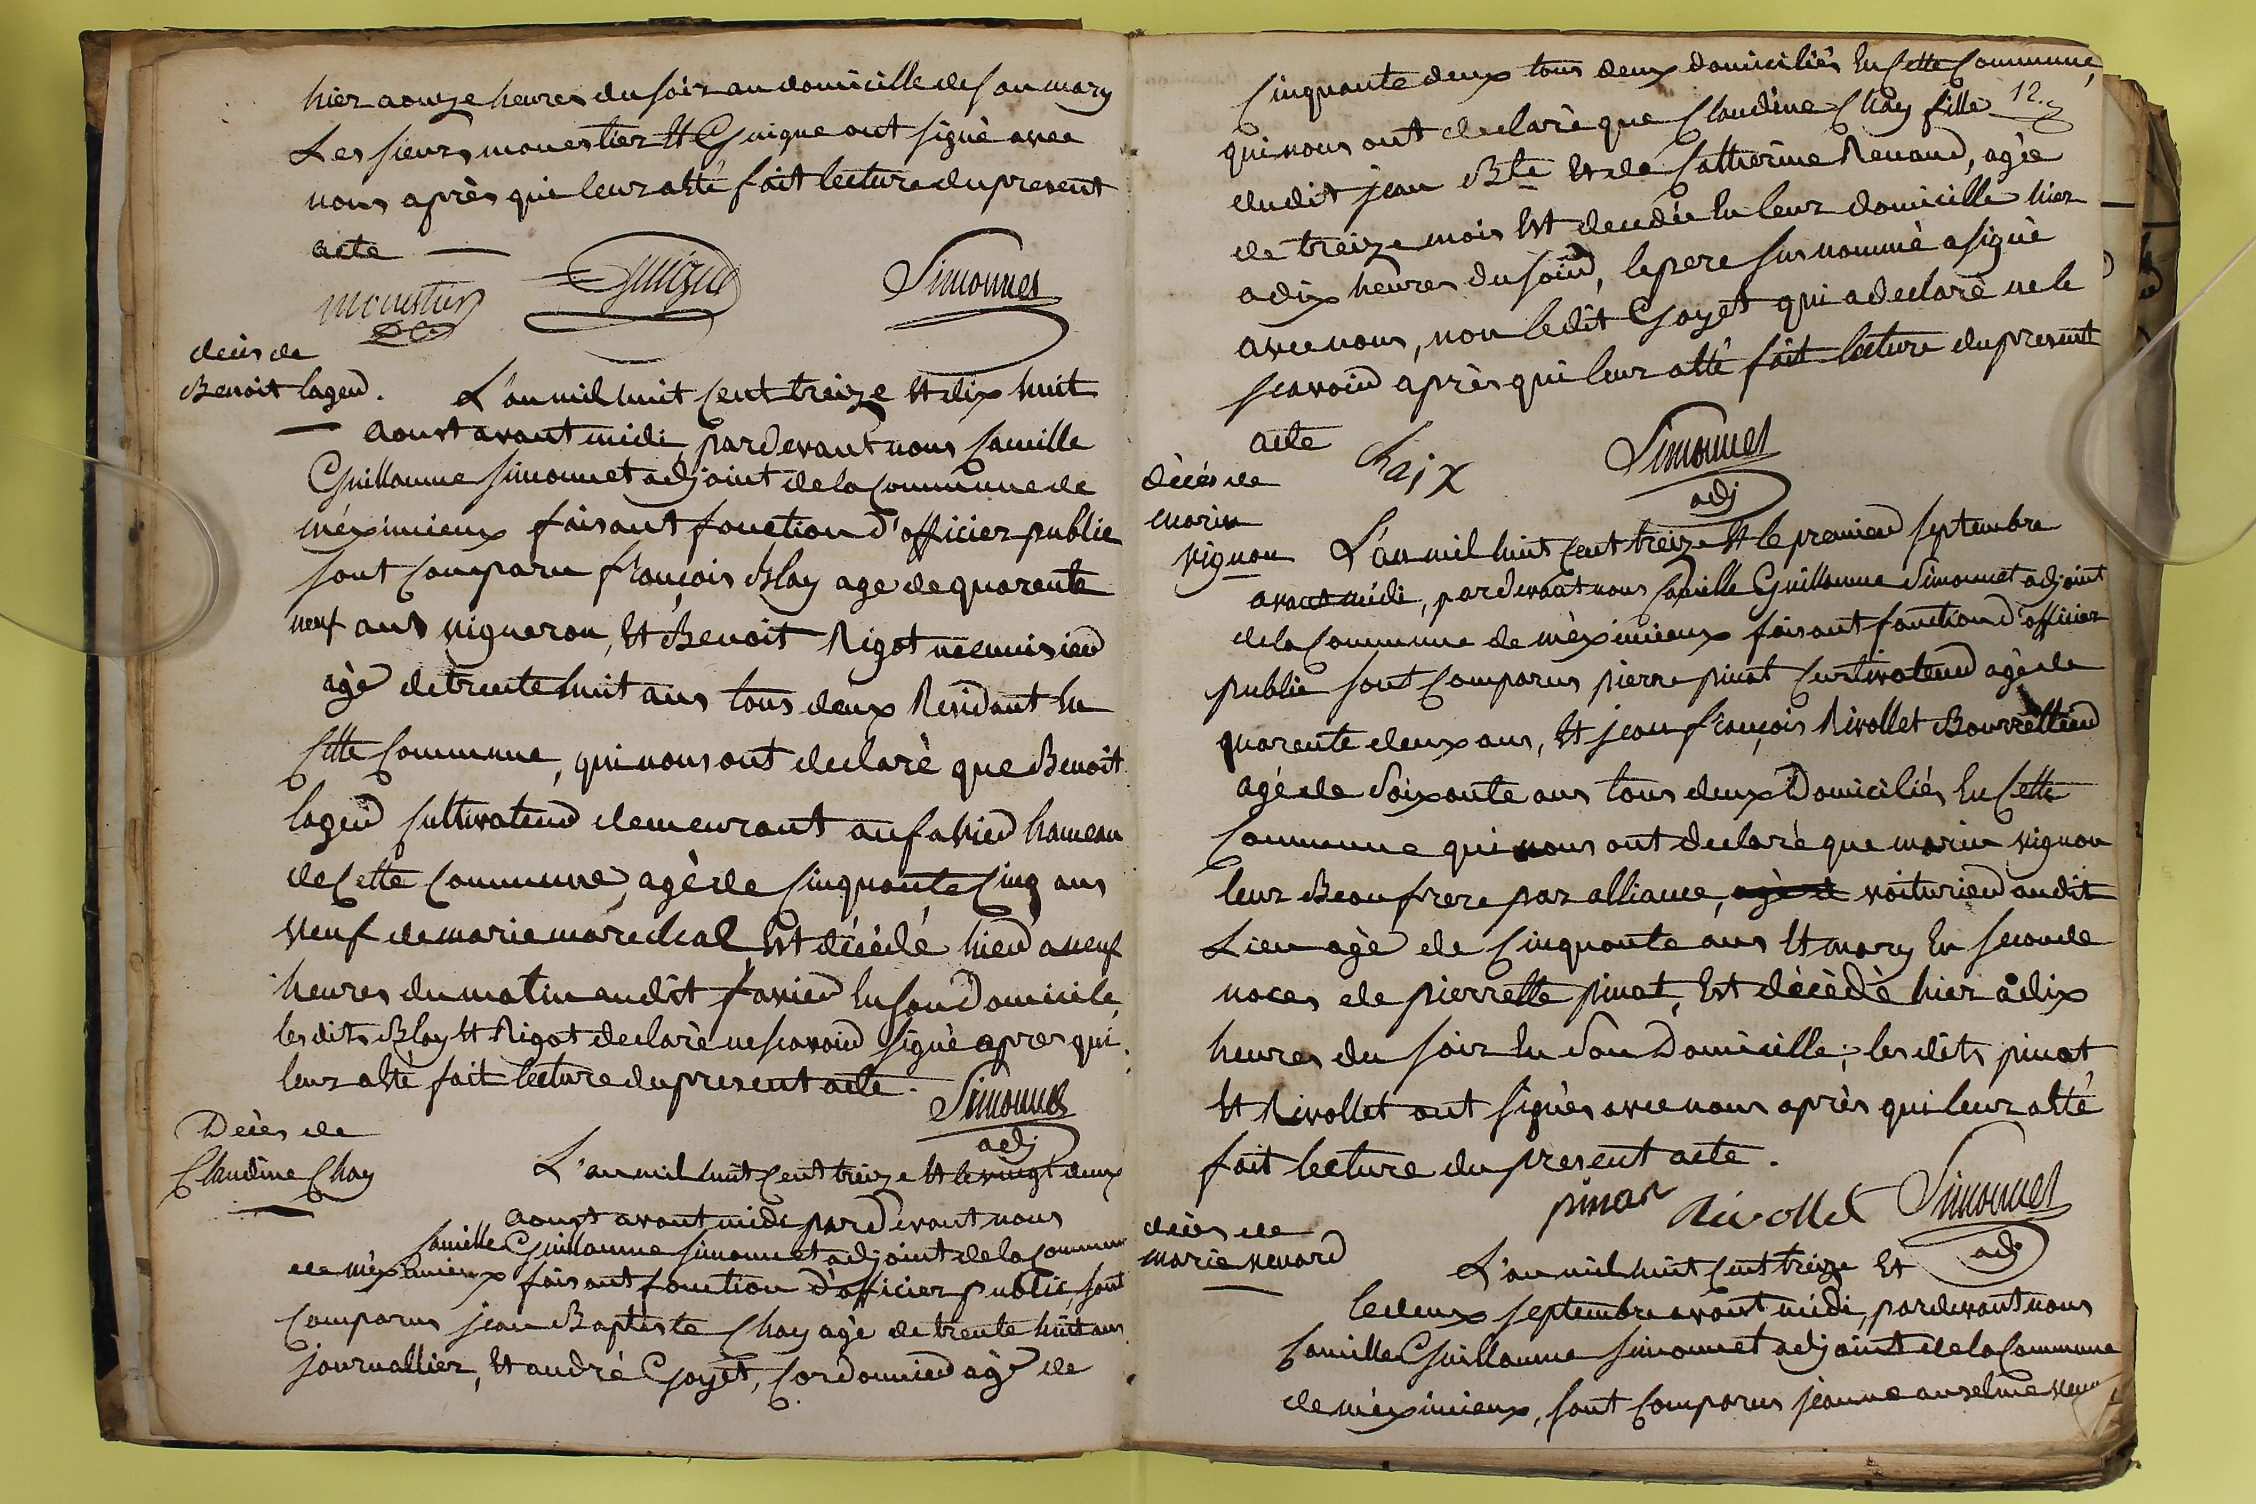 hier a onze heures du soir au domicille de son mary
Les sieurs monestier Et Guigue ont signé avec
nous après qui leur a Eté fait lecture du present
acte
monestier Guigue Simonnet
deces de
Benoit lager.
L'an mil huit Cent treize Et dix huit
aoust avant midi, pardevant nous Camille
Guillaume Simonnet adjoint de la Commune de
méximieux faisant fonction d'officier public
sont Comparu françois Blay age de quarente
neuf ans vigneron, Et Benoit Rigot menuisier
agé de trente huit ans tous deux Residant En
Cette Commune, qui nous ont declaré que Benoit
lager Cultivateur demeurant au favier hameau
de Cette Commune, agé de Cinquante Cinq ans
veuf de marie marechal Est décédé hier a neuf
heures du matin au dit favier En son Domicile,
les dits Blay Et Rigot declaré ne scavoir signé apres qui
leur a Eté fait lecture du present acte.
Simonnet
adj
Décès de
Claudine Chay
L'an mil huit Cent treize Et le vingt deux
aoust avant midi pardevant nous
Camille Guillaume Simonnet adjoint de la Commune
de méximieux faisant fonction d'officier public, sont
Comparus jean Baptiste Chay agé de trente huit ans
journallier, Et andré Goyet, Cordonnier agé de
12.
Cinquante deux tous deux domiciliés En Cette Commune,
qui nous ont declaré que Claudine Chay fille
dudit jean Bte Et de Catherine Renaud, agée
de treize mois Est decedée En leur domicille hier
a dix heures du soir, le pere sus nommé a signé
avec nous, non le dit Goyet qui a declaré ne le
scavoir après qui leur a Eté fait lecture du present
acte
Chaix Simonnet
adj
décés de
marin
vignon
L'an mil huit Cent treize Et le premier septembre
avant midi, pardevant nous Camille Guillaume Simonnet adjoint
de la Commune de méximieux faisant fonction d'officier
public sont Comparus pierre pinat Cultivateur agé de
quarente deux ans, Et jean françois Rivollet Bourrellier
agé de Soixante ans tous deux Domiciliés En Cette
Commune qui nous ont declaré que marin vignon
leur Beaufrere par alliance, agé d voiturier au dit
Lieu agé de Cinquante ans Et mary En seconde
noces de pierrette pinat, Est décédé hier à dix
heures du soir En Son Domicille; les dits pinat
Et Rivollet ont signés avec nous après qui leur a Eté
fait lecture du present acte.
pinat Rivollet Simonnet
adj
décès de
marie venard
L'an mil huit Cent treize Et
le deux septembre avant midi, pardevant nous
Camille Guillaume Simonnet adjoint de la Commune
de méximieux, sont Comparus jeanne anselme